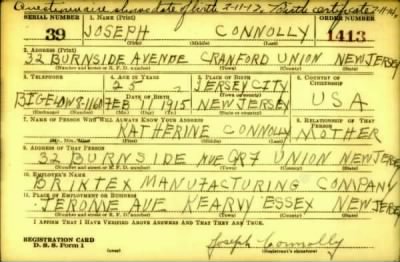 Questionnaire shows date of birth 2-11-12. Birth certificate 2-11-14.
SERIAL NUMBER 1. NAME (Print) ORDER NUMBER
39 JOSEPH CONNOLLY 1413
(First) (Middle) (Last)
2. ADDRESS (Print)
32 BURNSIDE AVENUE CRANFORD UNION NEW JERSEY
(Number and street or R. F. D. number) (Town) (County) (State)
3. TELEPHONE 4. AGE IN YEARS 5. PLACE OF BIRTH 6. COUNTRY OF CITIZENSHIP
25 JERSEY CITY
DATE OF BIRTH
BIGELOW 8-1160 FEB 11 1915 NEW JERSEY USA
(Exchange) (Number) (Mo.) (Day) (Yr.) (State or country)
7. NAME OF PERSON WHO WILL ALWAYS KNOW YOUR ADDRESS 8. RELATIONSHIP OF THAT PERSON
KATHERINE CONNOLLY MOTHER
(Mr., Mrs., Miss) (First) (Middle) (Last)
9. ADDRESS OF THAT PERSON
32 BURNSIDE AVE UNION NEW JERSEY
(Number and street or R. F. D. number) (Town) (County) (State)
10. EMPLOYER'S NAME
BRINTEX MANUFACTURING COMPANY
11. PLACE OF EMPLOYMENT OR BUSINESS
AVE KEARNY ESSEX NEW JERSEY
(Number and street or R. F. D. number) (Town) (County) (State)
I AFFIRM THAT I HAVE VERIFIED ABOVE ANSWERS AND THAT THEY ARE TRUE.
REGISTRATION CARD
D. S. S. Form 1
Joseph Connolly